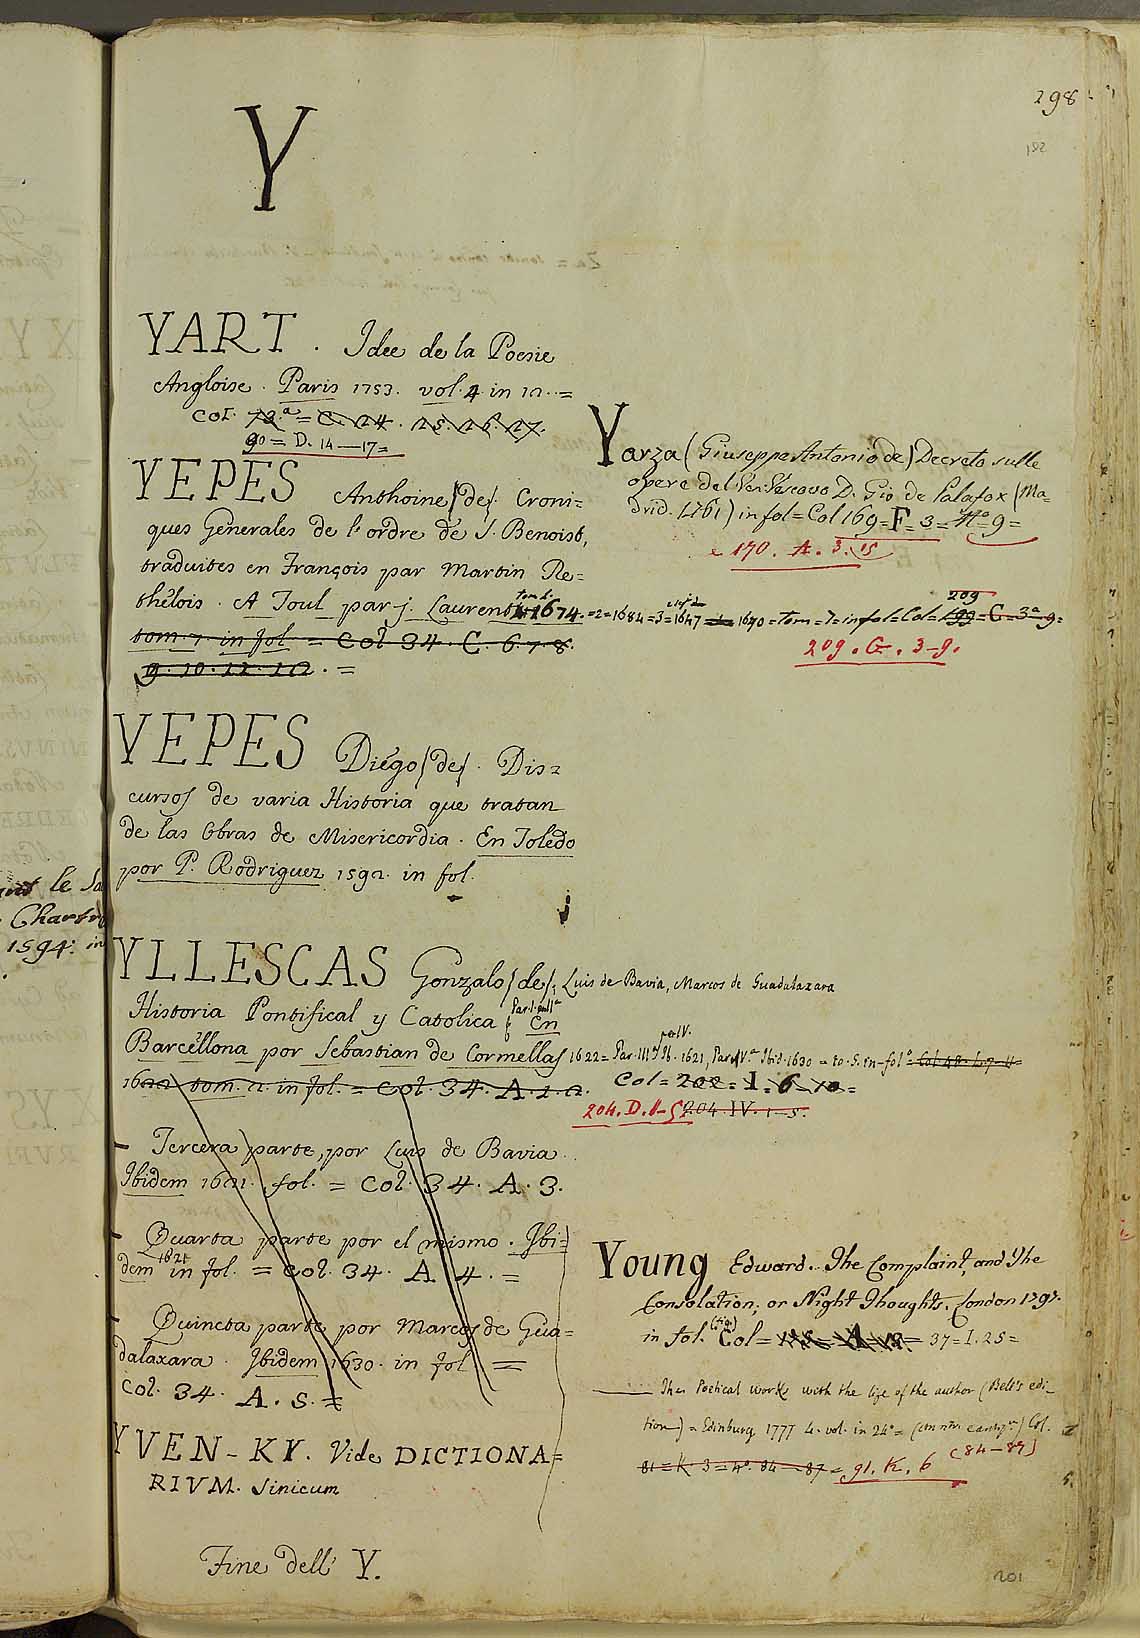 298
182
Y
YART. Idee de la Poesie
Angloise. Paris 1753. vol. 4 in 12. =
Col. 72.ª = C. 24. 25. 26. 27.
90 = D. 14 — 17 =
YEPES Anthoine /de/. Croni=
ques Generales de l'ordre de S. Benoist,
traduites en François par Martin Re=
thélois. A Toul par j. Laurent 1674. = 2 = 1684 = 3 = 1647 1670 = Tom = 7 = in fol = Col = 199 = C. 3ª 9 =
209
tom. 7. in fol. = Col 34. C. 6. 7. 8.
9. 10. 11. 12. =
209. G. 3-9.
YEPES Diégo /de/. Dis=
cursos de varia Historia que tratan
de las Obras de Misericordia. En Toledo
por P. Rodriguez 1592. in fol.
YLLESCAS Gonzalo /de/; Luis de Bavia, Marcos de Guadalaxara
Historia Pontifical y Catolica En
Barcellona por Sebastian de Cormellas 1622 = Par. III 1621, Par. V.ª Ibid. 1630 = to. 5. in-fol.º = Col 48. 4-7-4
1622 tom. 2. in fol. = Col. 34. A. 1. 2. Col = 202 = I. 6-10 =
204. D. 1-5 204. IV. 1-5.
– Tercera parte, por Luis de Bavia
Ibidem 1621. fol. = Col. 34. A. 3.
– Quarta parte por el mismo. Ibi=
dem 1621 in fol. = Col. 34. A. 4. =
– Quincta parte por Marcos de Gua=
dalaxara. Ibidem 1630. in fol =
Col. 34. A. 5. =
YVEN-KY. Vide DICTIONA=
RIVM. Sinicum
Fine dell' Y.
Yarza (Giuseppe Antonio de) Decreto sulle
opere del Ven: Vescovo D. Gio de Palafox (Ma=
drid. 1761) in fol = Col 169 = F = 3 = Nº 9 =
e 170. A. 3. 15
Young Edward. The Complaint, and the
Consolation; or Night Thoughts. London 1797.
in fol. (fig.) Col = 37 = I. 25 =
—— The Poetical works with the life of the author (Bell's edi_
tion) = Edinburg 1777 4. vol. in 24º = Col.
81 = K 3 = nº. 84 — 87 = 91. K. 6 (84-87)
201